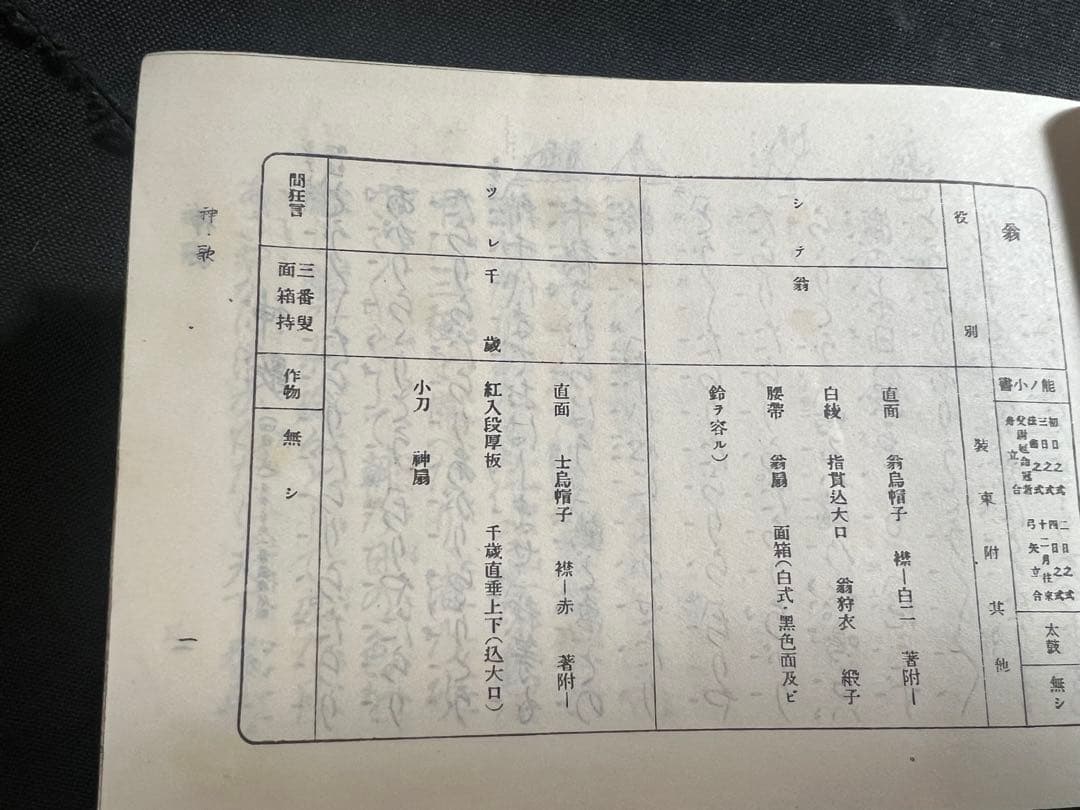 翁
能ノ小書
初日之式
二日之式
三日之式
四日之式
法会之式
十二月往来
父尉延命冠者
弓矢立合
舟立合
太鼓
無シ
役別
装束附其他
シテ
翁
直面 翁烏帽子 襟―白二 著附―
白綾 指貫込大口 翁狩衣 緞子
腰帯 翁扇 面箱(白式・黒色面及ビ
鈴ヲ容ル)
ツレ
千歳
直面 士烏帽子 襟―赤 著附―
紅入段厚板 千歳直垂上下(込大口)
小刀 神扇
間狂言
三番叟
面箱持
作物
無シ
神歌
一